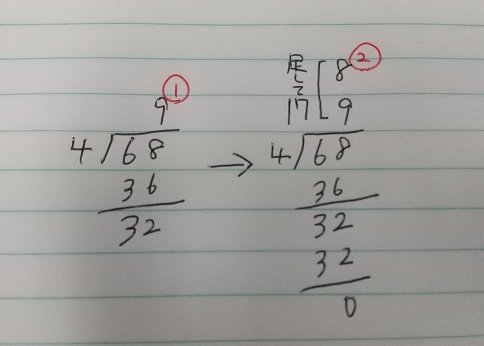 9 ①
4 ) 68
36
32
→
足して 17 [ 8 ② 9
4 ) 68
36
32
32
0